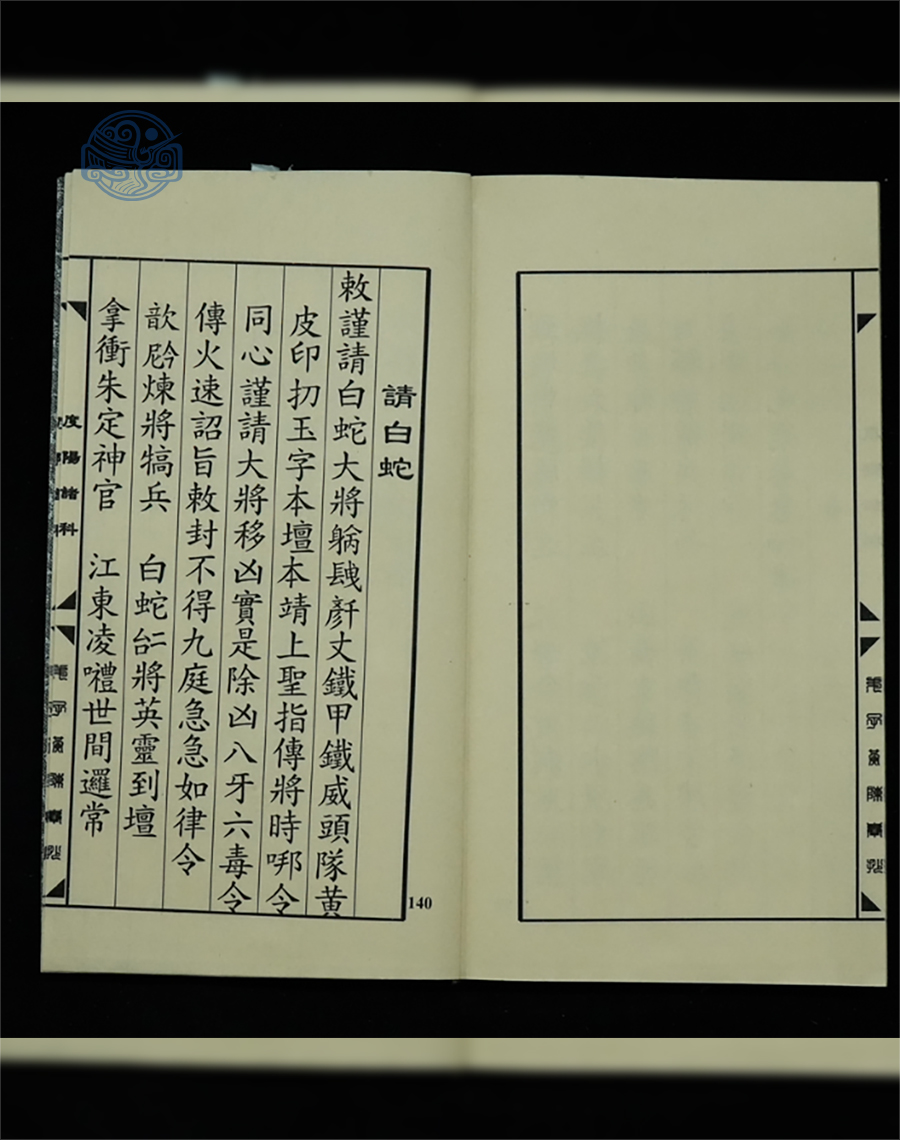 請白蛇
敕謹請白蛇大將躺㬻彥丈鐵甲鐵威頭隊黃
皮印扨玉字本壇本靖上聖指傳將時哪令
同心謹請大將移凶實是除凶八牙六毒令
傳火速詔旨敕封不得九庭急急如律令
歆煉將犒兵　白蛇將英靈到壇
拿衝朱定神官　江東凌囆世間邏常
度陽諸科
140